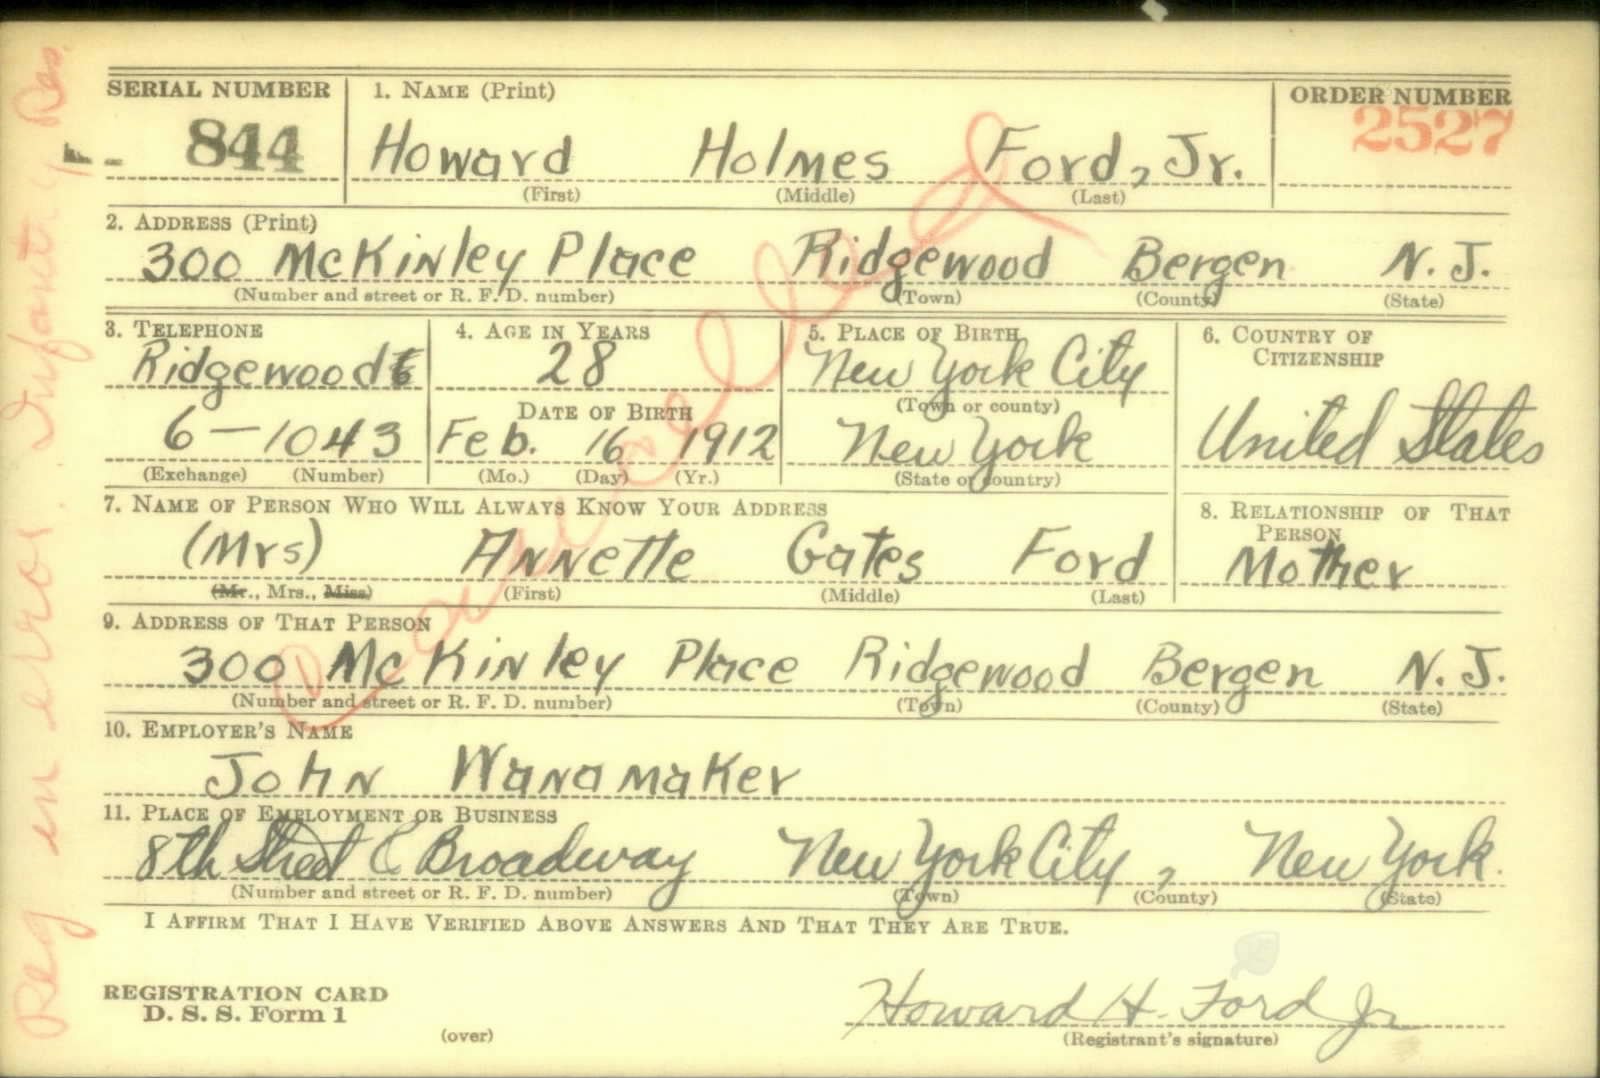 SERIAL NUMBER 1. NAME (Print) ORDER NUMBER
844 Howard Holmes Ford, Jr. 2527
(First) (Middle) (Last)
2. ADDRESS (Print)
300 McKinley Place Ridgewood Bergen N. J.
(Number and street or R. F. D. number) (Town) (County) (State)
3. TELEPHONE 4. AGE IN YEARS 5. PLACE OF BIRTH 6. COUNTRY OF
CITIZENSHIP
Ridgewood 28 New York City
(Town or county)
DATE OF BIRTH
6-1043 Feb. 16 1912 New York United States
(Exchange) (Number) (Mo.) (Day) (Yr.) (State or country)
7. NAME OF PERSON WHO WILL ALWAYS KNOW YOUR ADDRESS 8. RELATIONSHIP OF THAT
PERSON
(Mrs) Annette Gates Ford Mother
(Mr., Mrs., Miss) (First) (Middle) (Last)
9. ADDRESS OF THAT PERSON
300 McKinley Place Ridgewood Bergen N. J.
(Number and street or R. F. D. number) (Town) (County) (State)
10. EMPLOYER'S NAME
John Wanamaker
11. PLACE OF EMPLOYMENT OR BUSINESS
8th Street & Broadway New York City, New York.
(Number and street or R. F. D. number) (Town) (County) (State)
I AFFIRM THAT I HAVE VERIFIED ABOVE ANSWERS AND THAT THEY ARE TRUE.
REGISTRATION CARD
D. S. S. Form 1
(over)
Howard H. Ford Jr
(Registrant's signature)
Cancelled
Reg in error. Infantry Res.